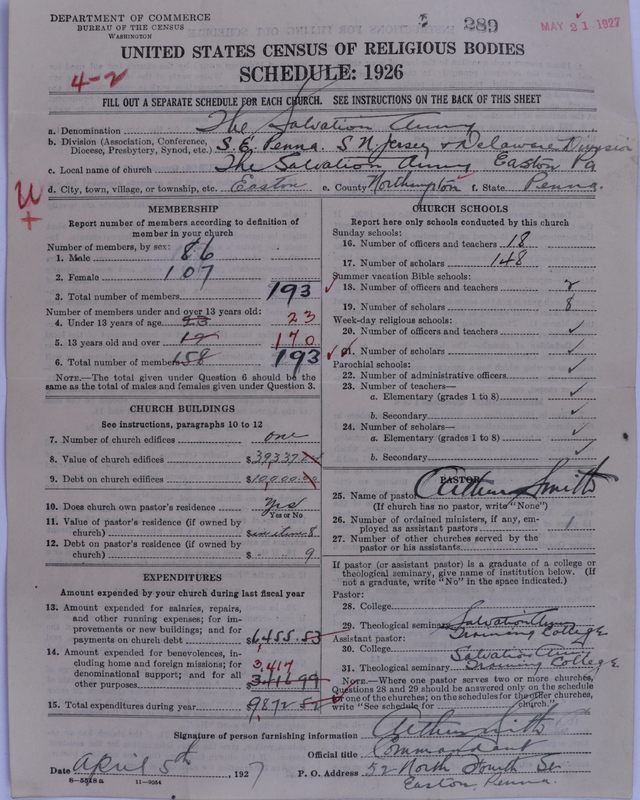 DEPARTMENT OF COMMERCE
BUREAU OF THE CENSUS
WASHINGTON
289
MAY 21 1927
UNITED STATES CENSUS OF RELIGIOUS BODIES
4-2
SCHEDULE: 1926
FILL OUT A SEPARATE SCHEDULE FOR EACH CHURCH. SEE INSTRUCTIONS ON THE BACK OF THIS SHEET
a. Denomination The Salvation Army
b. Division (Association, Conference, Diocese, Presbytery, Synod, etc.) S.E. Penna. S. N Jersey & Delaware Division
c. Local name of church The Salvation Army Easton Pa
d. City, town, village, or township, etc. Easton e. County Northampton f. State Penna.
MEMBERSHIP
Report number of members according to definition of
member in your church
Number of members, by sex:
1. Male 86
2. Female 107
3. Total number of members 193
Number of members under and over 13 years old:
4. Under 13 years of age 23 23
5. 13 years old and over 170
6. Total number of members 158 193
NOTE.—The total given under Question 6 should be the
same as the total of males and females given under Question 3.
CHURCH BUILDINGS
See instructions, paragraphs 10 to 12
7. Number of church edifices one
8. Value of church edifices $
9. Debt on church edifices $10,000.00
10. Does church own pastor's residence? Yes
Yes or No
11. Value of pastor's residence (if owned by
church) $ 8
12. Debt on pastor's residence (if owned by
church) $ 9
EXPENDITURES
Amount expended by your church during last fiscal year
13. Amount expended for salaries, repairs,
and other running expenses; for im-
provements or new buildings; and for
payments on church debt $6,455.53
14. Amount expended for benevolences, in-
cluding home and foreign missions; for
denominational support; and for all
other purposes 3,417 $3,416.99
15. Total expenditures during year $9872
CHURCH SCHOOLS
Report here only schools conducted by this church
Sunday schools:
16. Number of officers and teachers 18
17. Number of scholars 148
Summer vacation Bible schools:
18. Number of officers and teachers 2
19. Number of scholars 8
Week-day religious schools:
20. Number of officers and teachers ✓
21. Number of scholars ✓
Parochial schools:
22. Number of administrative officers ✓
23. Number of teachers—
a. Elementary (grades 1 to 8) ✓
b. Secondary ✓
24. Number of scholars—
a. Elementary (grades 1 to 8) ✓
b. Secondary ✓
PASTOR
25. Name of pastor Arthur Smith
(If church has no pastor, write "None")
26. Number of ordained ministers, if any, em-
ployed as assistant pastors 1
27. Number of other churches served by the
pastor or his assistants
If pastor (or assistant pastor) is a graduate of a college or
theological seminary, give name of institution below. (If
not a graduate, write "No" in the space indicated.)
Pastor:
28. College
29. Theological seminary Salvation Army Training College
Assistant pastor:
30. College
31. Theological seminary Salvation Army Training College
NOTE.—Where one pastor serves two or more churches,
Questions 28 and 29 should be answered only on the schedule
for one of the churches; on the schedules for the other churches,
write "See schedule for church."
Signature of person furnishing information Arthur Smith
Official title Commandant
Date April 5th 1927 P. O. Address 52 North Fourth St
8-5518a 11-9084
Easton, Penna.